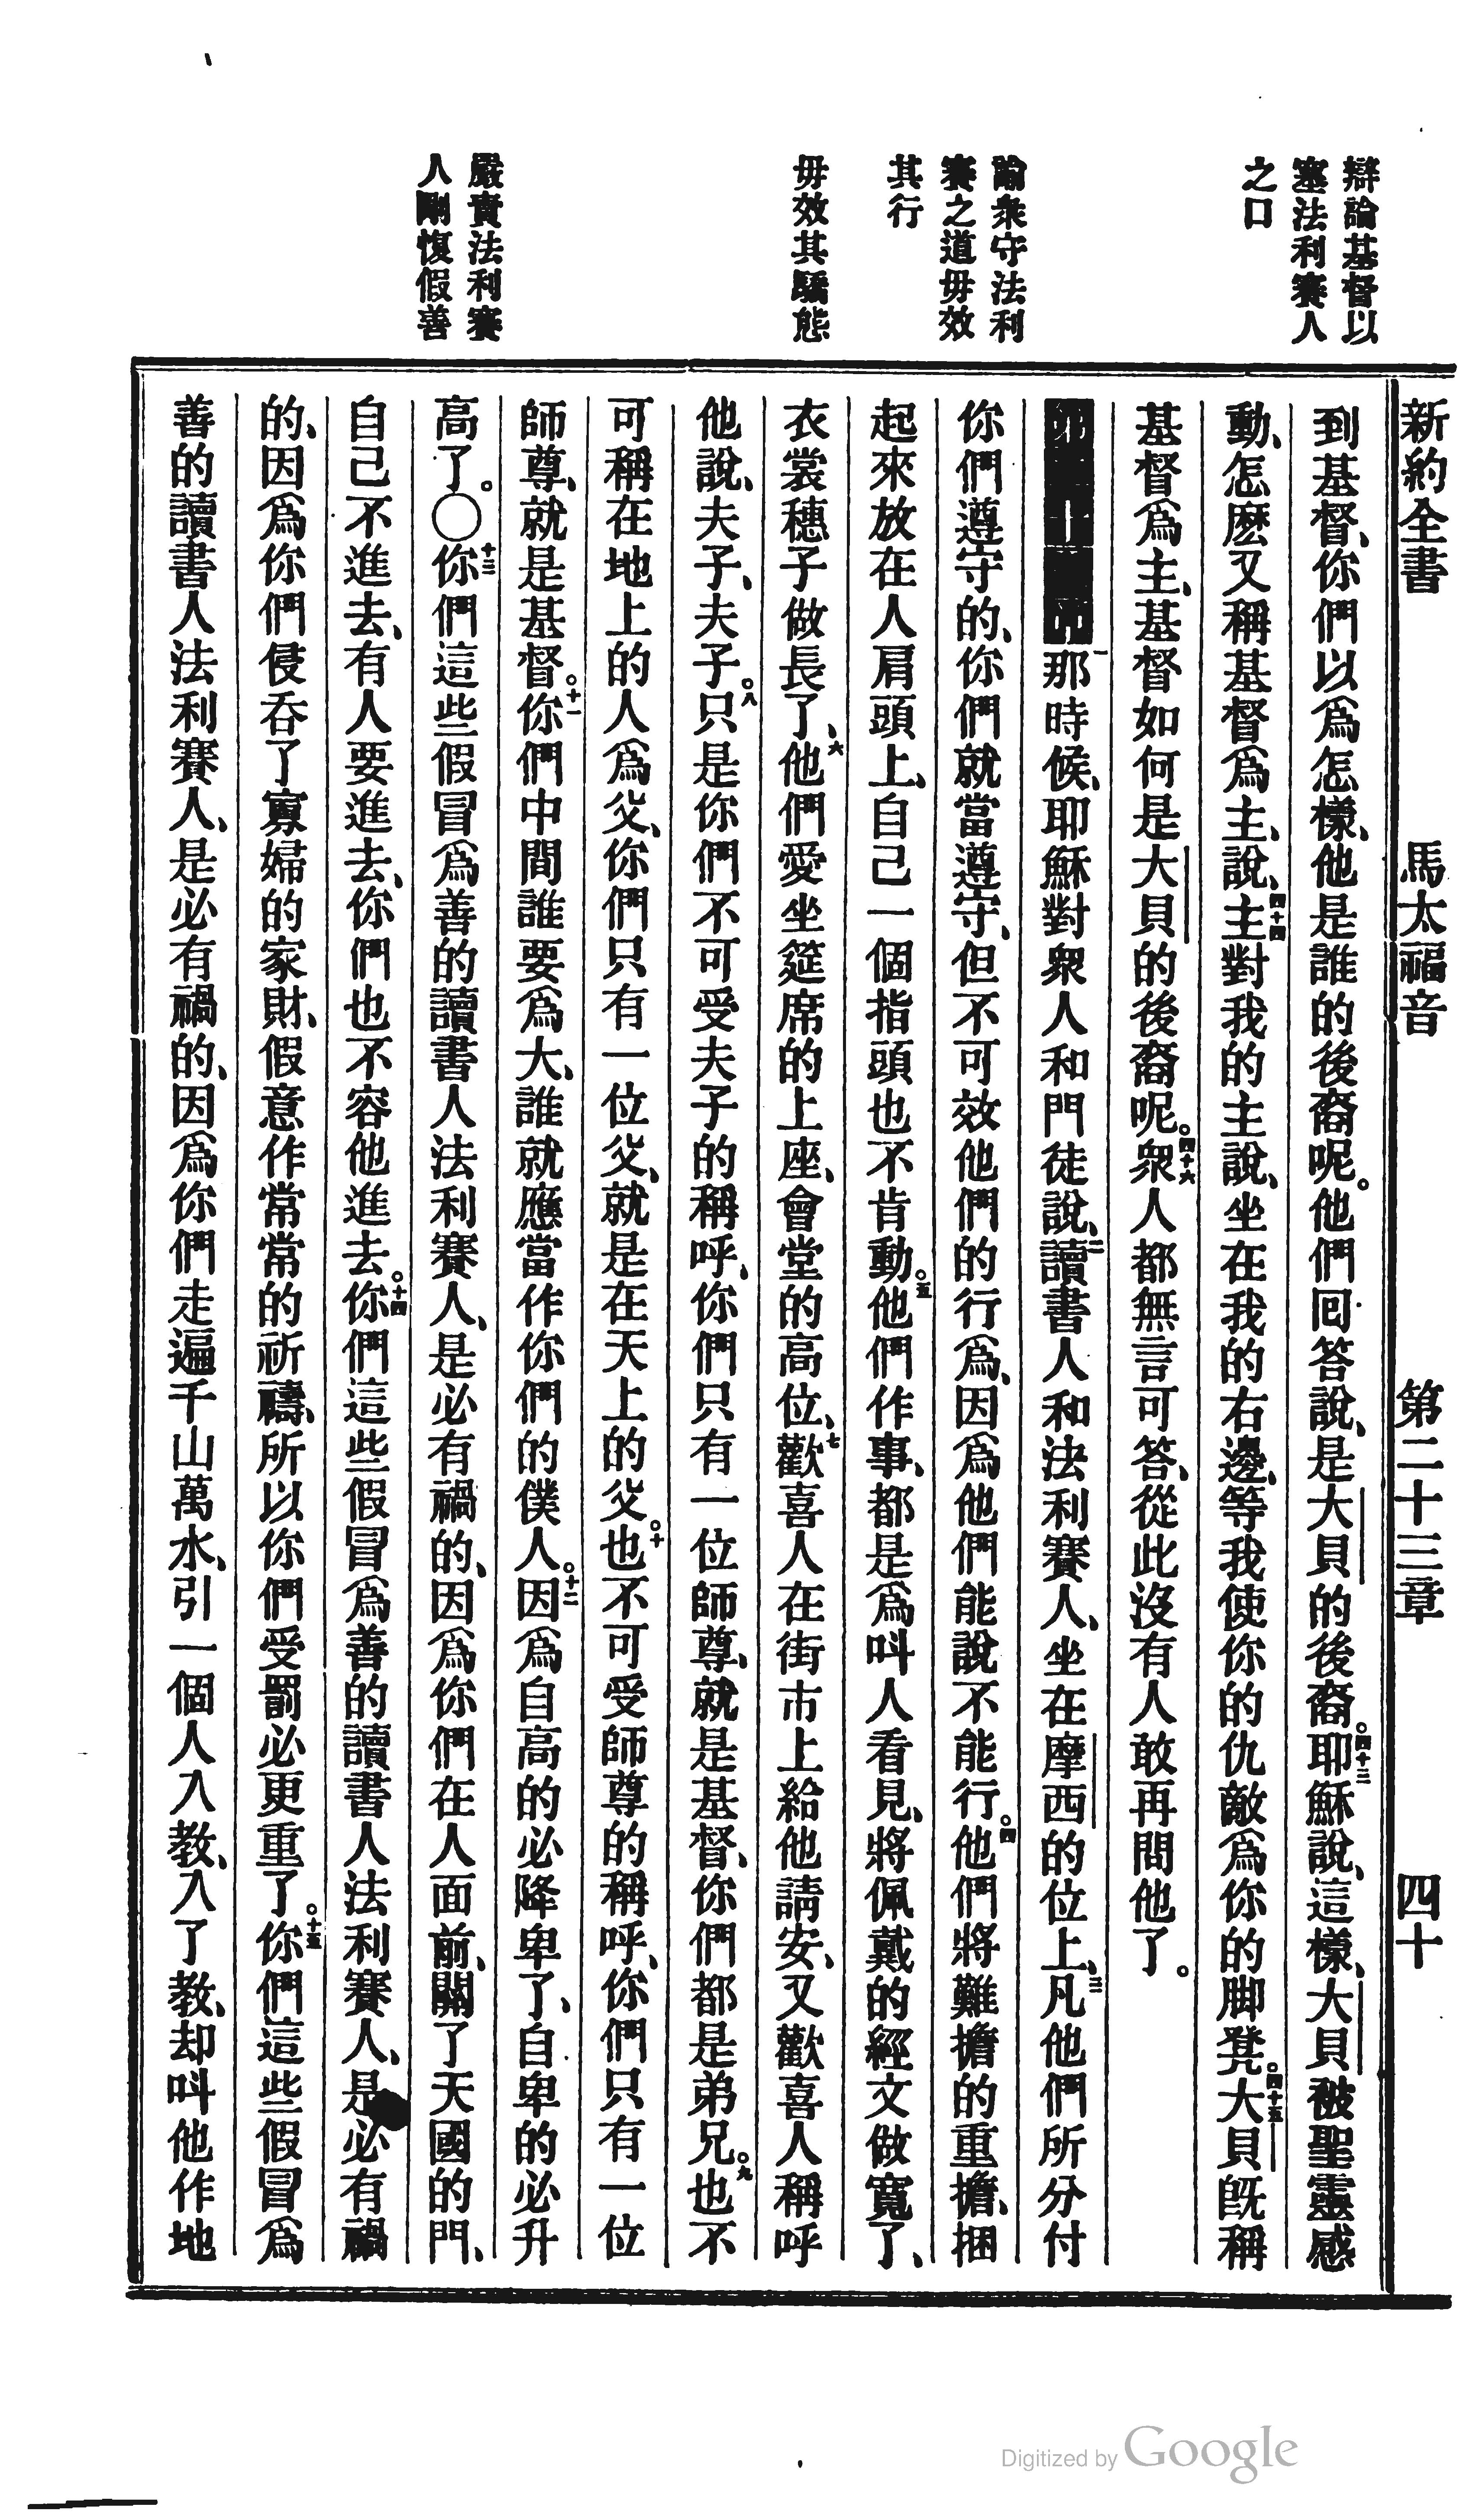 新約全書 馬太福音 第二十三章 四十
辯論基督以
塞法利賽人
之口
諭衆守法利
賽之道毋效
其行
毋效其驕態
嚴責法利賽
人剛愎假善
到基督、你們以爲怎樣、他是誰的後裔呢。他們回答說、是大貝的後裔。四十三耶穌說、這樣、大貝被聖靈感
動、怎麽又稱基督爲主、說、四十四主對我的主說、坐在我的右邊、等我使你的仇敵爲你的脚凳。四十五大貝旣稱
基督爲主、基督如何是大貝的後裔呢。四十六衆人都無言可答、從此沒有人敢再問他了。
一那時候、耶穌對衆人和門徒說、二讀書人和法利賽人、坐在摩西的位上、三凡他們所分付
你們遵守的、你們就當遵守、但不可效他們的行爲、因爲他們能說不能行。四他們將難擔的重擔、捆
起來放在人肩頭上、自己一個指頭也不肯動。五他們作事、都是爲呌人看見、將佩戴的經文做寬了、
衣裳穗子做長了、六他們愛坐筵席的上座、會堂的高位、七歡喜人在街市上給他請安、又歡喜人稱呼
他說、夫子、夫子。八只是你們不可受夫子的稱呼、你們只有一位師尊、就是基督、你們都是弟兄。九也不
可稱在地上的人爲父、你們只有一位父、就是在天上的父。十也不可受師尊的稱呼、你們只有一位
師尊、就是基督。十一你們中間誰要爲大、誰就應當作你們的僕人。十二因爲自高的必降卑了、自卑的必升
高了。〇十三你們這些假冒爲善的讀書人法利賽人、是必有禍的、因爲你們在人面前、關了天國的門、
自己不進去、有人要進去、你們也不容他進去。十四你們這些假冒爲善的讀書人法利賽人、是必有禍
的、因爲你們侵吞了寡婦的家財、假意作常常的祈禱、所以你們受罰必更重了。十五你們這些假冒爲
善的讀書人法利賽人、是必有禍的、因爲你們走遍千山萬水、引一個人入教、入了教、却呌他作地
Digitized by Google